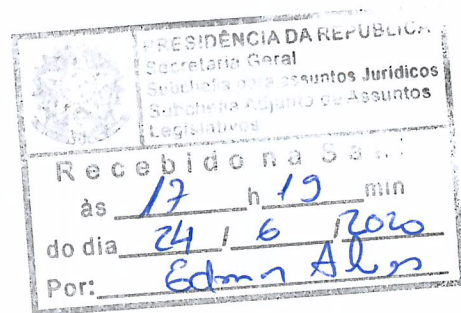 PRESIDÊNCIA DA REPÚBLICA
Secretaria Geral
Subchefia para assuntos Jurídicos
Subchefia Adjunta de Assuntos
Legislativos
Recebido na
às 17 h 19 min
do dia 24 / 6 / 2020
Por: Alves